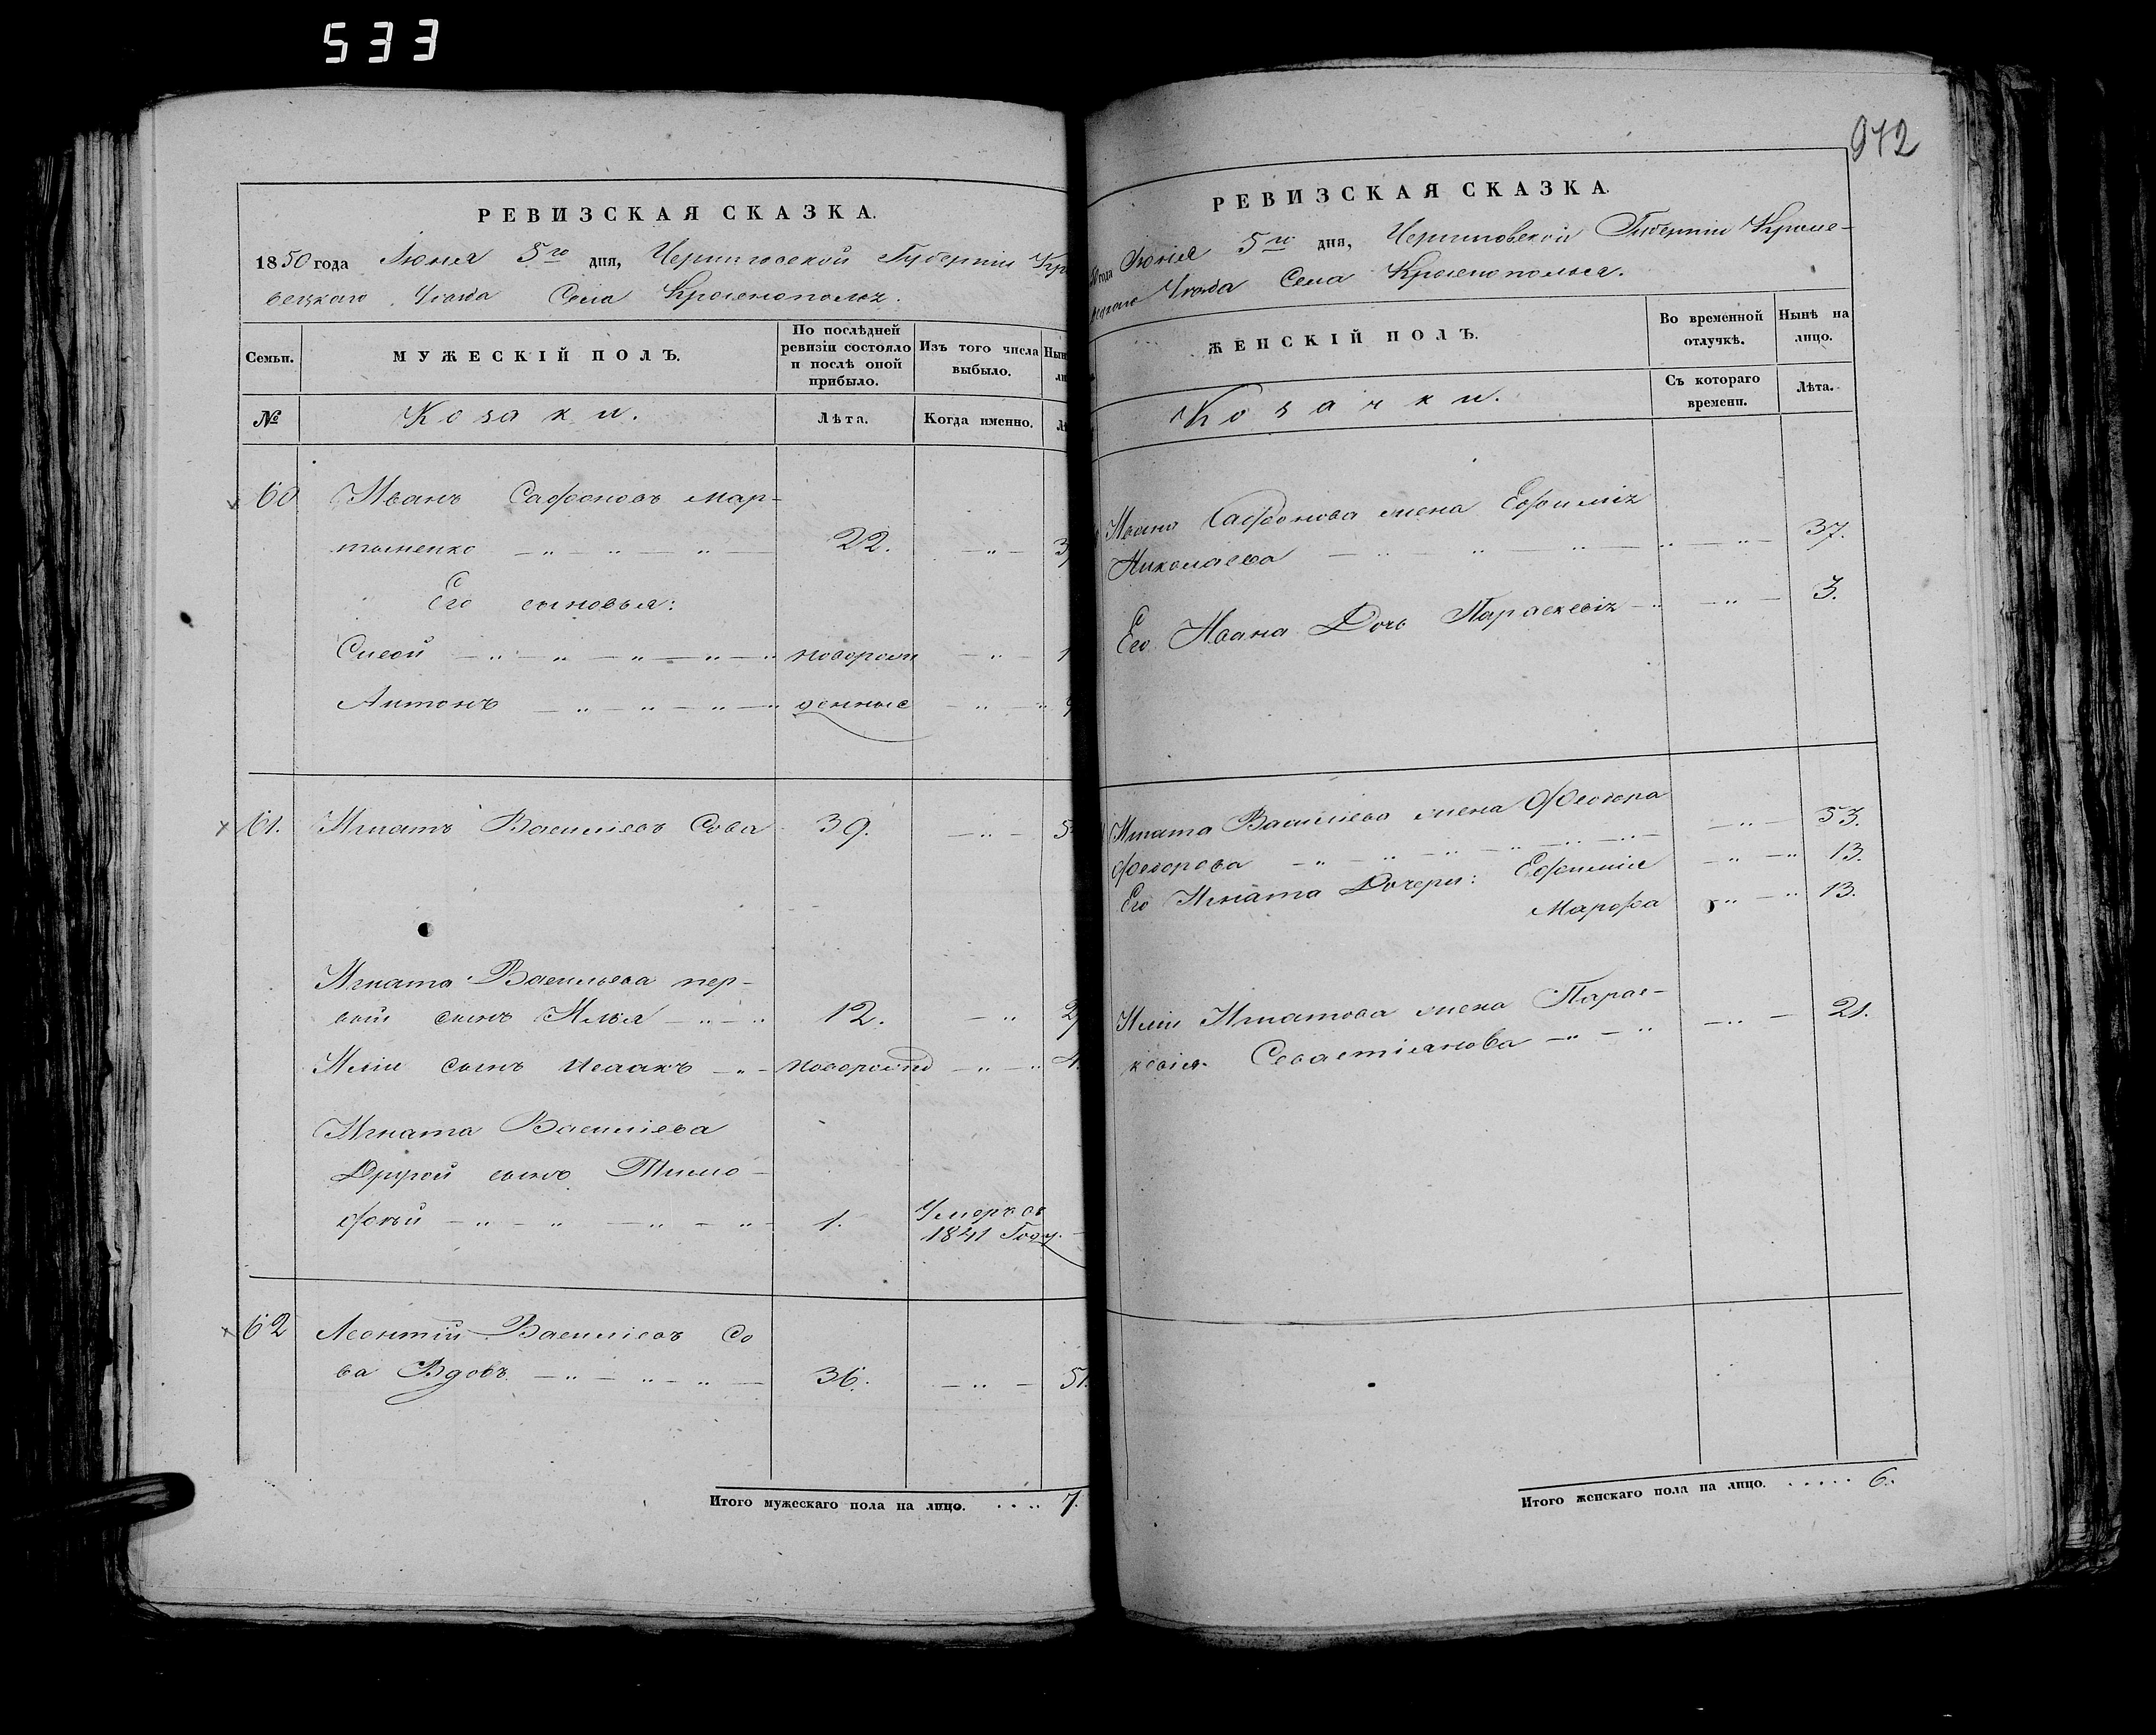 533
РЕВИЗСКАЯ СКАЗКА.
1850 года Іюня 5го дня, Черниговской Губерніи Кр
вецкаго Уѣзда Села
Семьи.
МУЖЕСКІЙ ПОЛЪ.
По послѣдней ревизіи состояло и послѣ оной прибыло.
Изъ того числа выбыло.
№
Козаки.
Лѣта.
Когда именно.
60 Иванъ Сафоновъ Мар-
22.
Его сыновья:
Сисой новорож
Антонъ денные
61. Игнатъ Василіевъ Сова 39.
Игната Васильева пер-
вый сынъ Илья 12.
Иліи сынъ Исаакъ новорожд 4.
Игната Василіева
Другой сынъ Тимо-
фей 1. Умеръ въ
1841 Году.
62 Леонтій Василіевъ Со
ва Вдовъ 36. 51.
Итого мужескаго пола на лицо. .... 7.
942
РЕВИЗСКАЯ СКАЗКА.
50 года Іюня 5го дня, Черниговской Губерніи Кроле-
вецкаго Уѣзда Села
ЖЕНСКІЙ ПОЛЪ.
Во временной отлучкѣ.
Нынѣ на лицо.
Козачки.
Съ котораго времени.
Лѣта.
Ивана Сафонова жена Ефимія
Николаева 37.
Его Ивана Дочь Параскевія 3.
Игната Василіева жена Феодора
Федорова 53.
Его Игната Дочери: Ефимія 13.
Марфа 13.
Иліи Игнатова жена Парас-
кевія Севастіянова 21.
Итого женскаго пола на лицо. ..... 6.